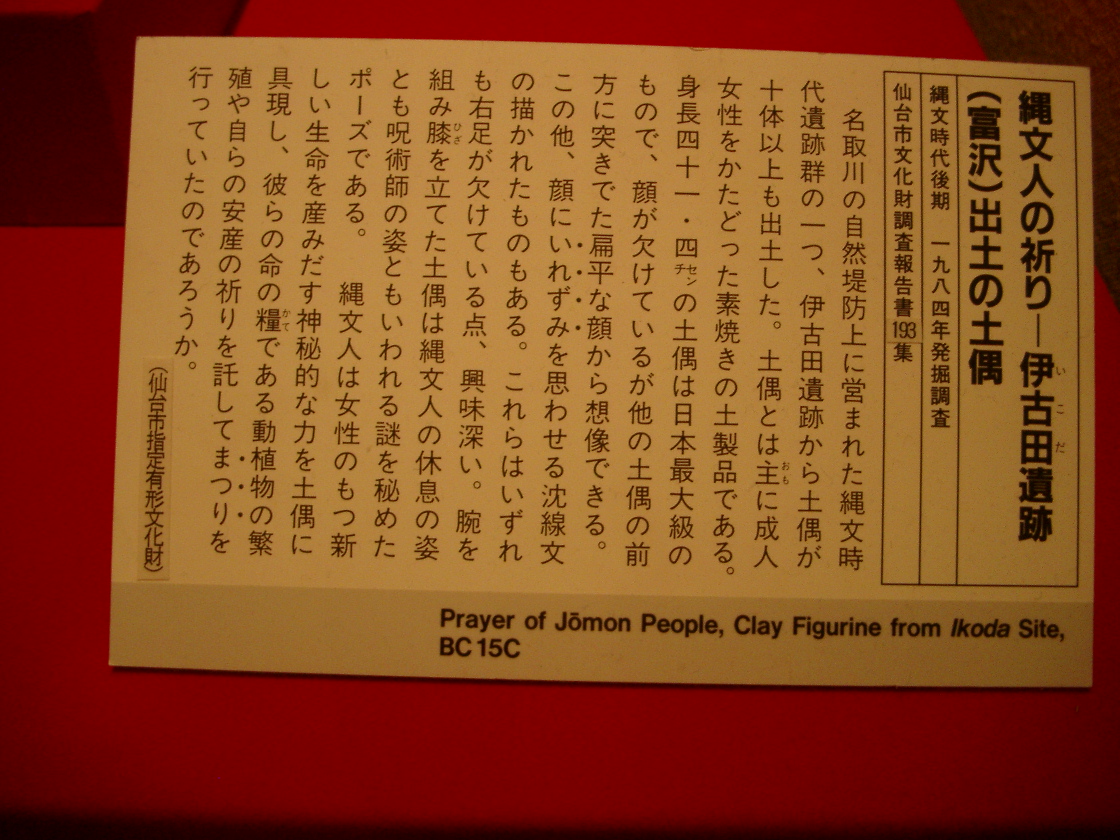 縄文人の祈り―伊古田遺跡
(富沢)出土の土偶
縄文時代後期 一九八四年発掘調査
仙台市文化財調査報告書193集
名取川の自然堤防上に営まれた縄文時
代遺跡群の一つ、伊古田遺跡から土偶が
十体以上も出土した。土偶とは主に成人
女性をかたどった素焼きの土製品である。
身長四十一・四センチの土偶は日本最大級の
もので、顔が欠けているが他の土偶の前
方に突きでた扁平な顔から想像できる。
この他、顔にいれずみを思わせる沈線文
の描かれたものもある。これらはいずれ
も右足が欠けている点、興味深い。腕を
組み膝を立てた土偶は縄文人の休息の姿
とも呪術師の姿ともいわれる謎を秘めた
ポーズである。 縄文人は女性のもつ新
しい生命を産みだす神秘的な力を土偶に
具現し、彼らの命の糧である動植物の繁
殖や自らの安産の祈りを託してまつりを
行っていたのであろうか。
(仙台市指定有形文化財)
Prayer of Jōmon People, Clay Figurine from Ikoda Site,
BC15C